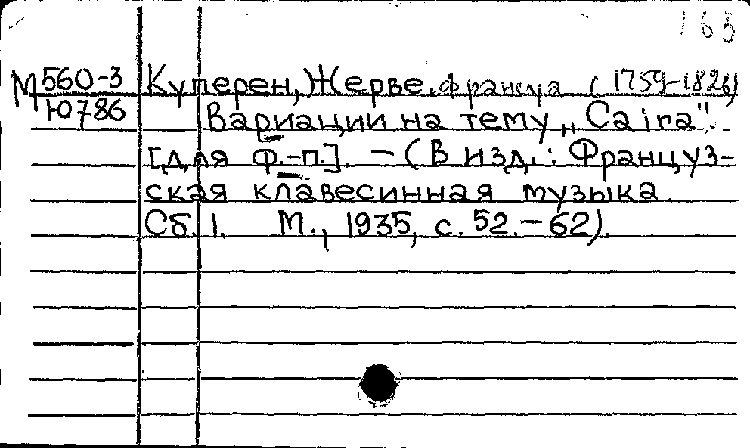 163
М 560-3 Куперен, Жерве-Франсуа (1759-1826)
Ю786 Вариации на тему „Ca ira".
[для ф.-п.]. – (В изд.: Француз-
ская клавесинная музыка
Сб. 1. М., 1935, с. 52.–62).